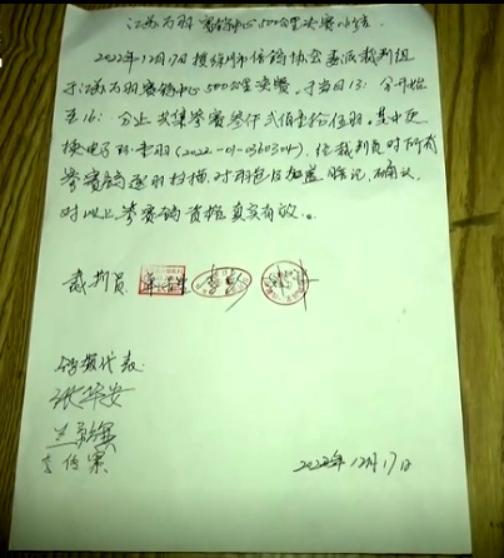 江苏万羽赛鸽中心500公里决赛小结
2022年12月17日授徐州市信鸽协会委派裁判组
于江苏万羽赛鸽中心500公里决赛,于当日13: 分开始
至16: 分止,共集参赛叁仟贰佰壹拾伍羽。其中更
换电子环壹羽(2022-01-0360304),经裁判员对所有
参赛鸽逐羽扫描,对羽色及加盖暗记,确认
对以上参赛鸽资格真实有效。
裁判员
鸽友代表:
张华安
2022年12月17日